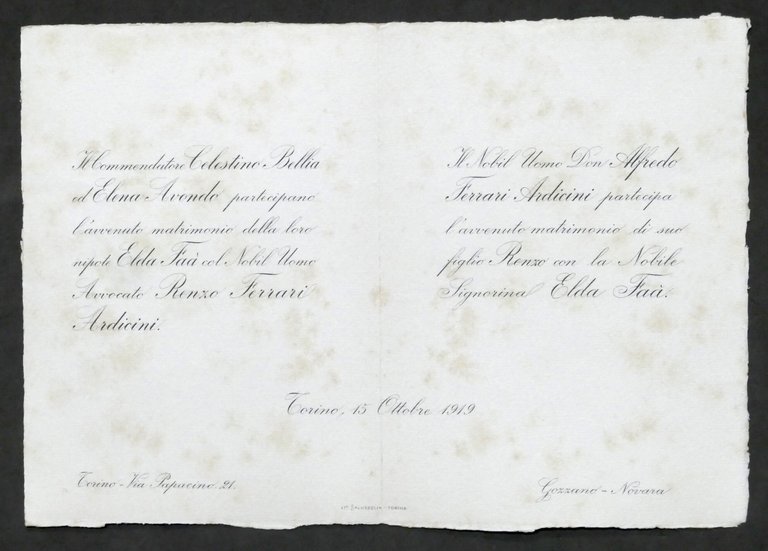 Il Commendatore Celestino Bellia
ed Elena Avondo partecipano
l'avvenuto matrimonio della loro
nipote Elda Faà col Nobil Uomo
Avvocato Renzo Ferrari
Ardicini.
Il Nobil Uomo Don Alfredo
Ferrari Ardicini partecipa
l'avvenuto matrimonio di suo
figlio Renzo con la Nobile
Signorina Elda Faà.
Torino, 15 Ottobre 1919
Torino - Via Papacino 21.
Gozzano - Novara
TORINO